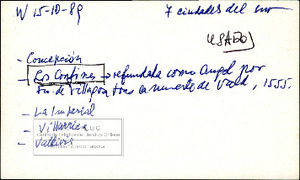 W 15-10-89
7 ciudades del sur
USADO
- Concepción
- Los Confines → refundada como Angol por
de Villagra tras la muerte de Vald, 1555.
- La Imperial
- Villarrica
- Valdivia